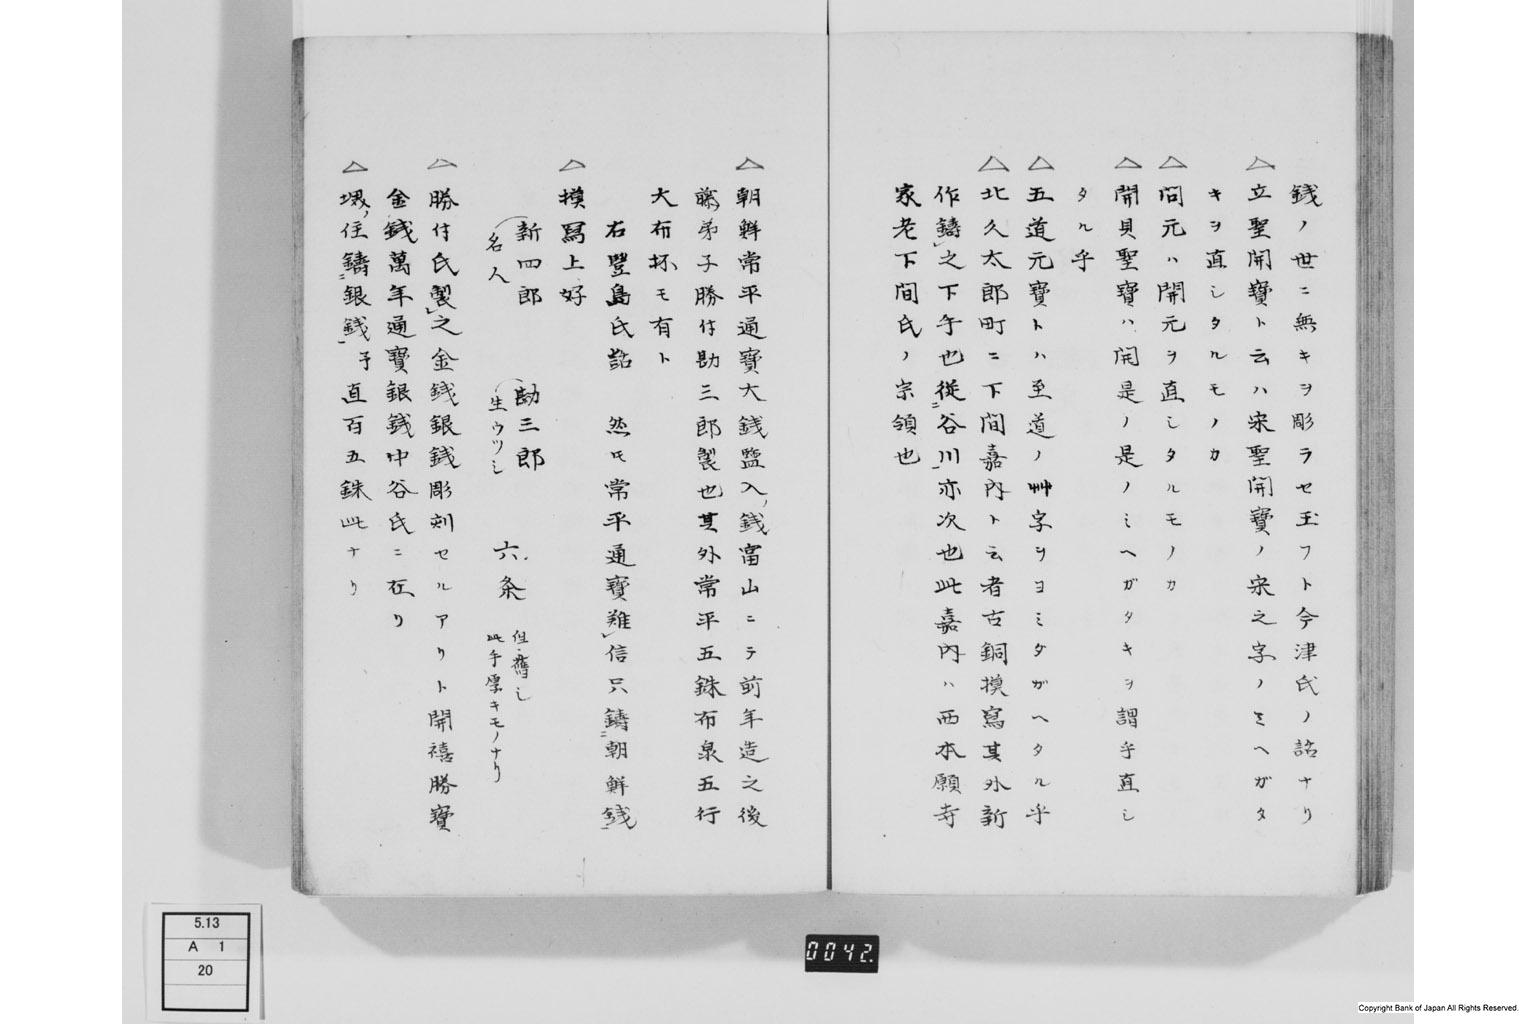 銭ノ世ニ無キヲ彫ラセ玉フト今津氏ノ話ナリ
△ 立聖開寶ト云ハ宋聖開寶ノ宋之字ノミヘガタ
キヲ直シタルモノカ
△ 問元ハ開元ヲ直シタルモノカ
△ 開貝聖寶ハ開是ノ是ノミヘガタキヲ謂乎直シ
タル乎
△ 五道元寶トハ至道ノ艸字ヲヨミタガヘタル乎
△ 北久太郎町ニ下間嘉内ト云者古銅摸寫其外新
作鋳之下手也従谷川亦次也此嘉内ハ西本願寺
家老下間氏ノ宗領也
△ 朝鮮常平通寶大銭盬入銭富山ニテ前年造之後
藤弟子勝什勘三郎製也其外常平五銖布泉五行
大布抔モ有ト
右豐島氏話 然トモ常平通寶難信只鑄朝鮮銭
△ 摸冩上好
新四郎 勘三郎 六条
名人 生ウツシ 但舊シ
此手厚キモノナリ
△ 勝什氏製之金銭銀銭彫刻セルアリト開禧勝寶
金銭萬年通寶銀銭中谷氏ニ在リ
△ 堺住鑄銀銭予直百五銖此ナリ
5.13
A 1
20
0042.
Copyright Bank of Japan All Rights Reserved.